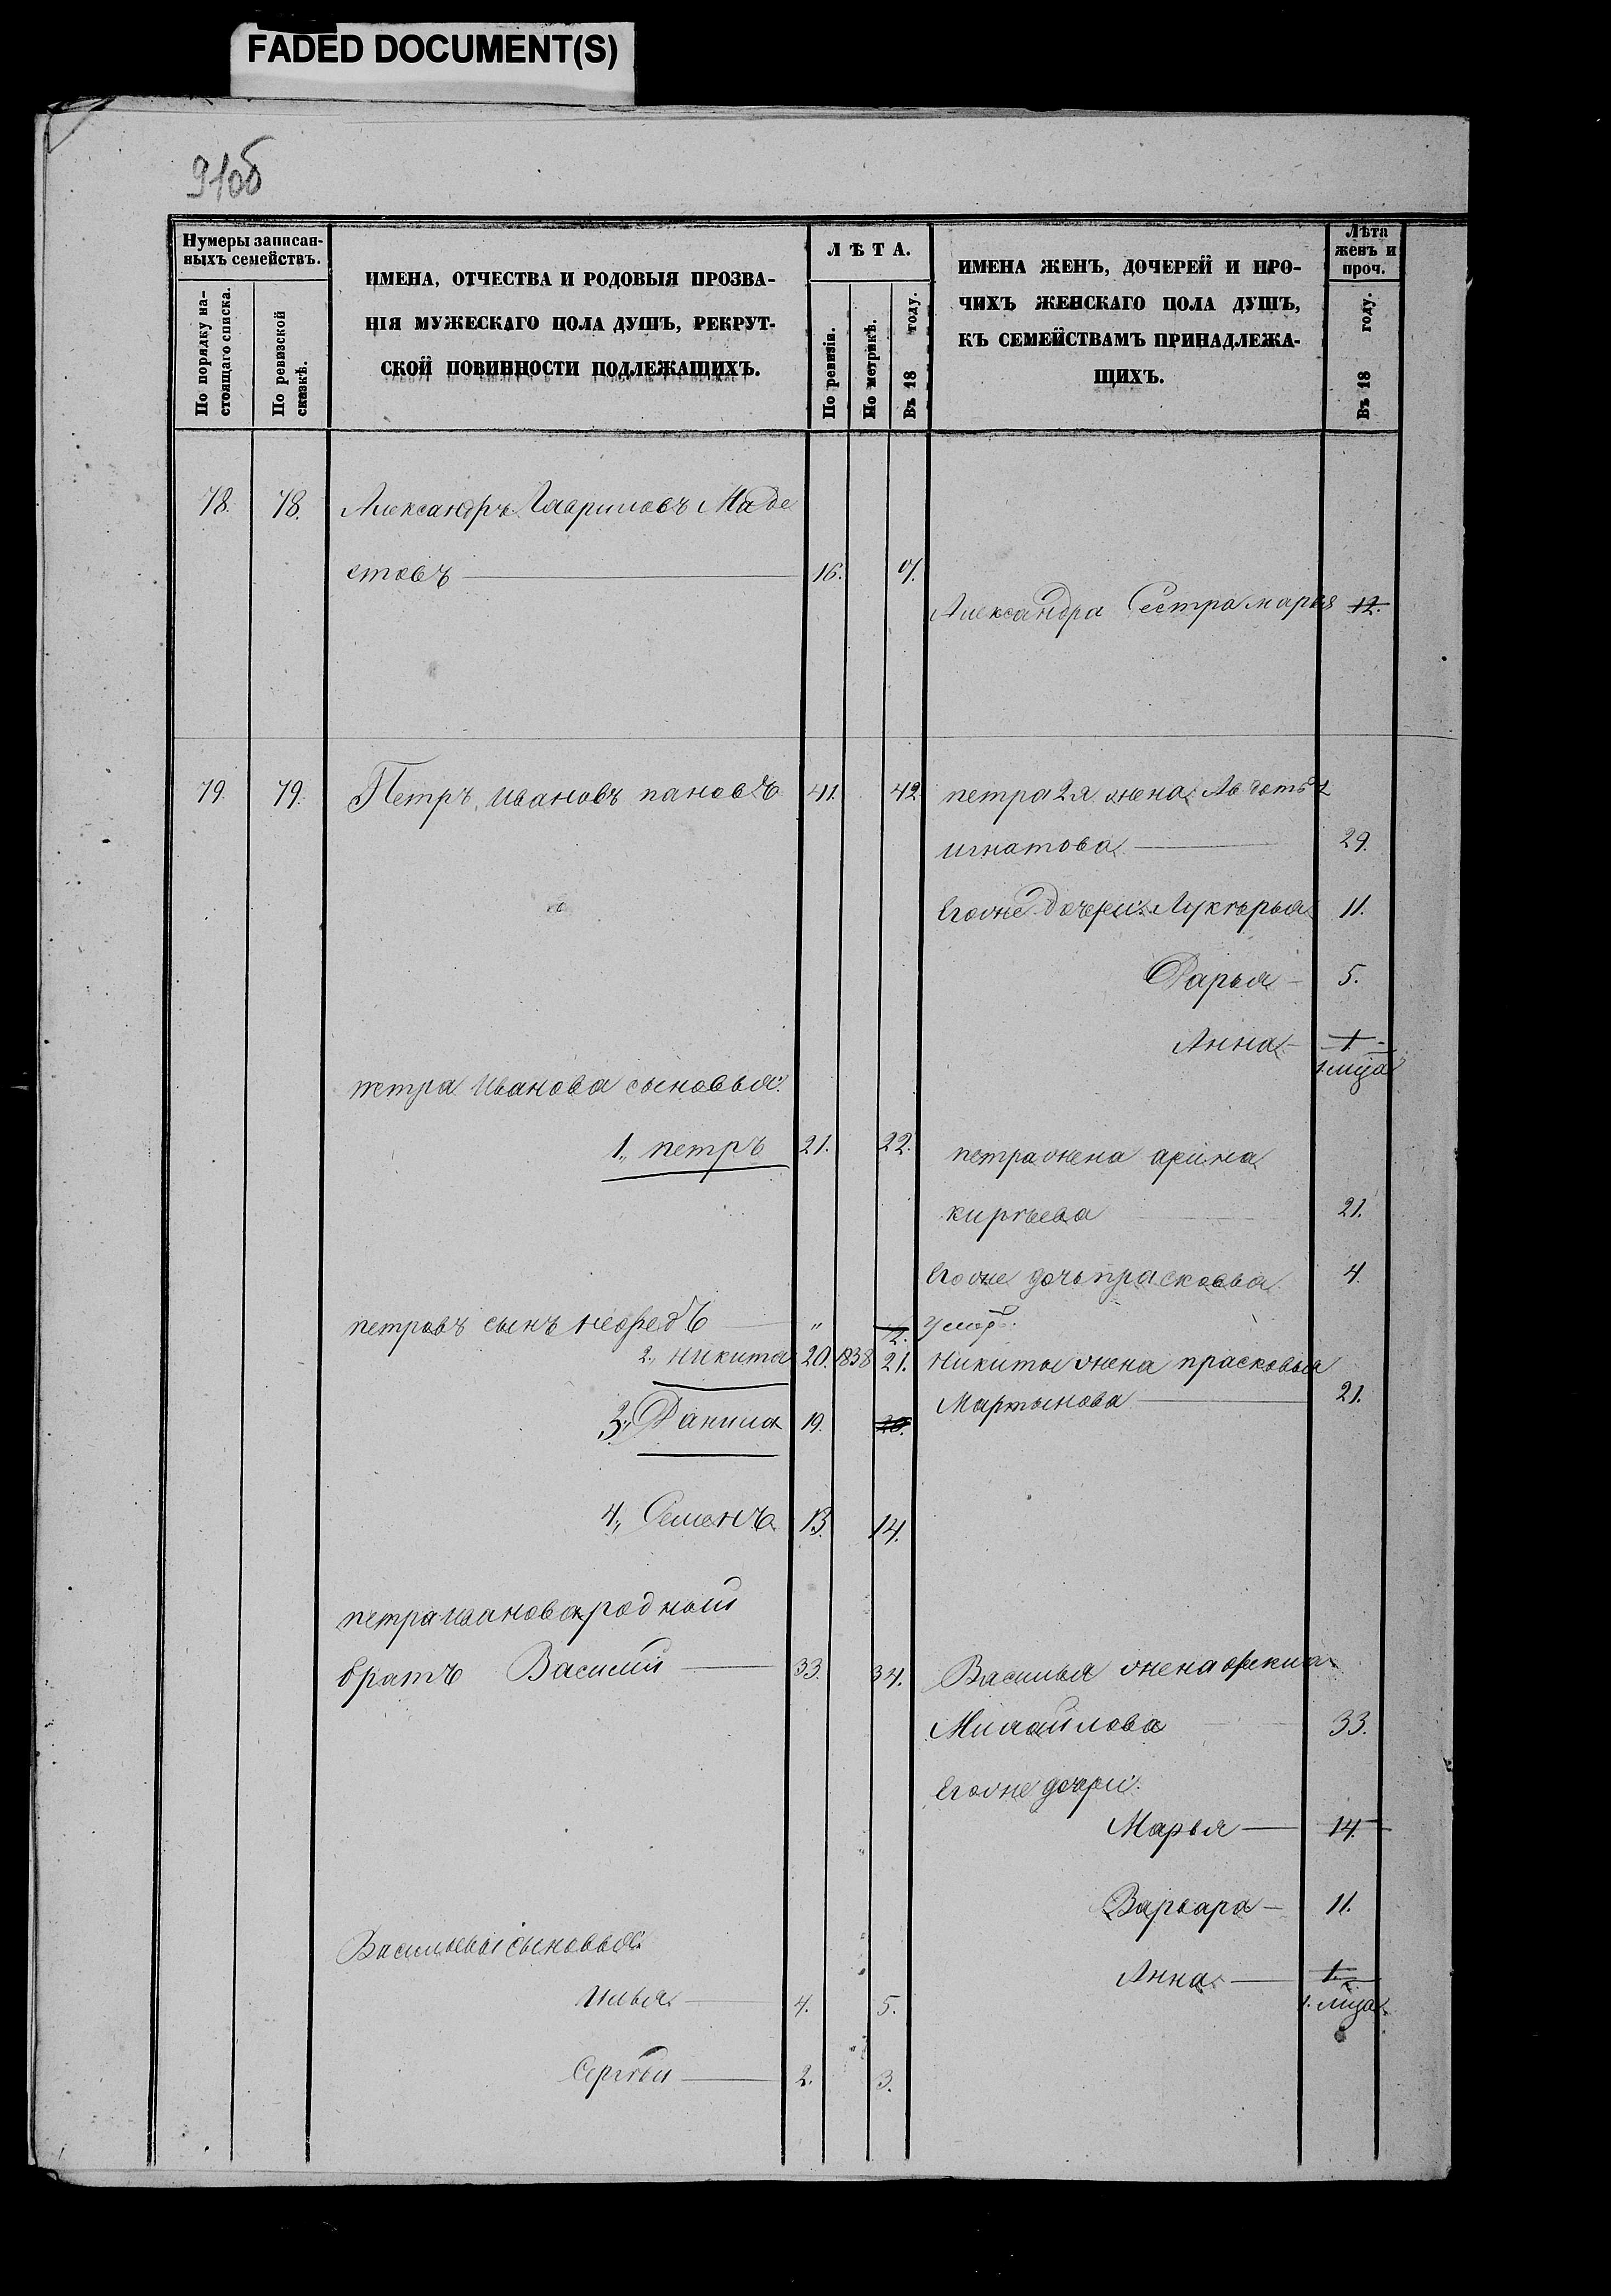 FADED DOCUMENT(S)
91об
Нумеры записан-
ныхъ семействъ.
По порядку на-
стоящаго списка.
По ревизской
сказкѣ.
ИМЕНА, ОТЧЕСТВА И РОДОВЫЯ ПРОЗВА-
НІЯ МУЖЕСКАГО ПОЛА ДУШЪ, РЕКРУТ-
СКОЙ ПОВИННОСТИ ПОДЛЕЖАЩИХЪ.
ЛѢТА.
По ревизіи.
По метрикѣ.
Въ 18 году.
ИМЕНА ЖЕНЪ, ДОЧЕРЕЙ И ПРО-
ЧИХЪ ЖЕНСКАГО ПОЛА ДУШЪ,
КЪ СЕМЕЙСТВАМЪ ПРИНАДЛЕЖА-
ЩИХЪ.
Лѣта
женъ и
проч.
Въ 18 году.
78. 78. Александръ Гавриловъ Маде
стовъ 16.
Александра Сестра марья 12.
79 79. Петръ Ивановъ пановъ 41. 42. петра 2я жена Авдотья
игнатова 29.
Егоже дочери: Лукерья 11.
Дарья 5.
Анна 1.
петра Иванова сыновья:
1., петръ 21. 22. петра жена арина
киреева 21.
Егоже дочь прасковья 4.
петровъ сынъ нефедъ " 2. умер.
2., никита 20. 1838 21. никиты жена прасковья
Мартынова 21.
3., Данила 19. 20.
4., Семенъ 13. 14.
петра иванова родный
братъ Василий 33. 34. Василья жена фекла
Михайлова 33.
Егоже дочери:
Марья 14.
Варвара 11.
Васильевы сыновья:
Анна 1.
Илья 4. 5.
Сергѣй 2. 3.